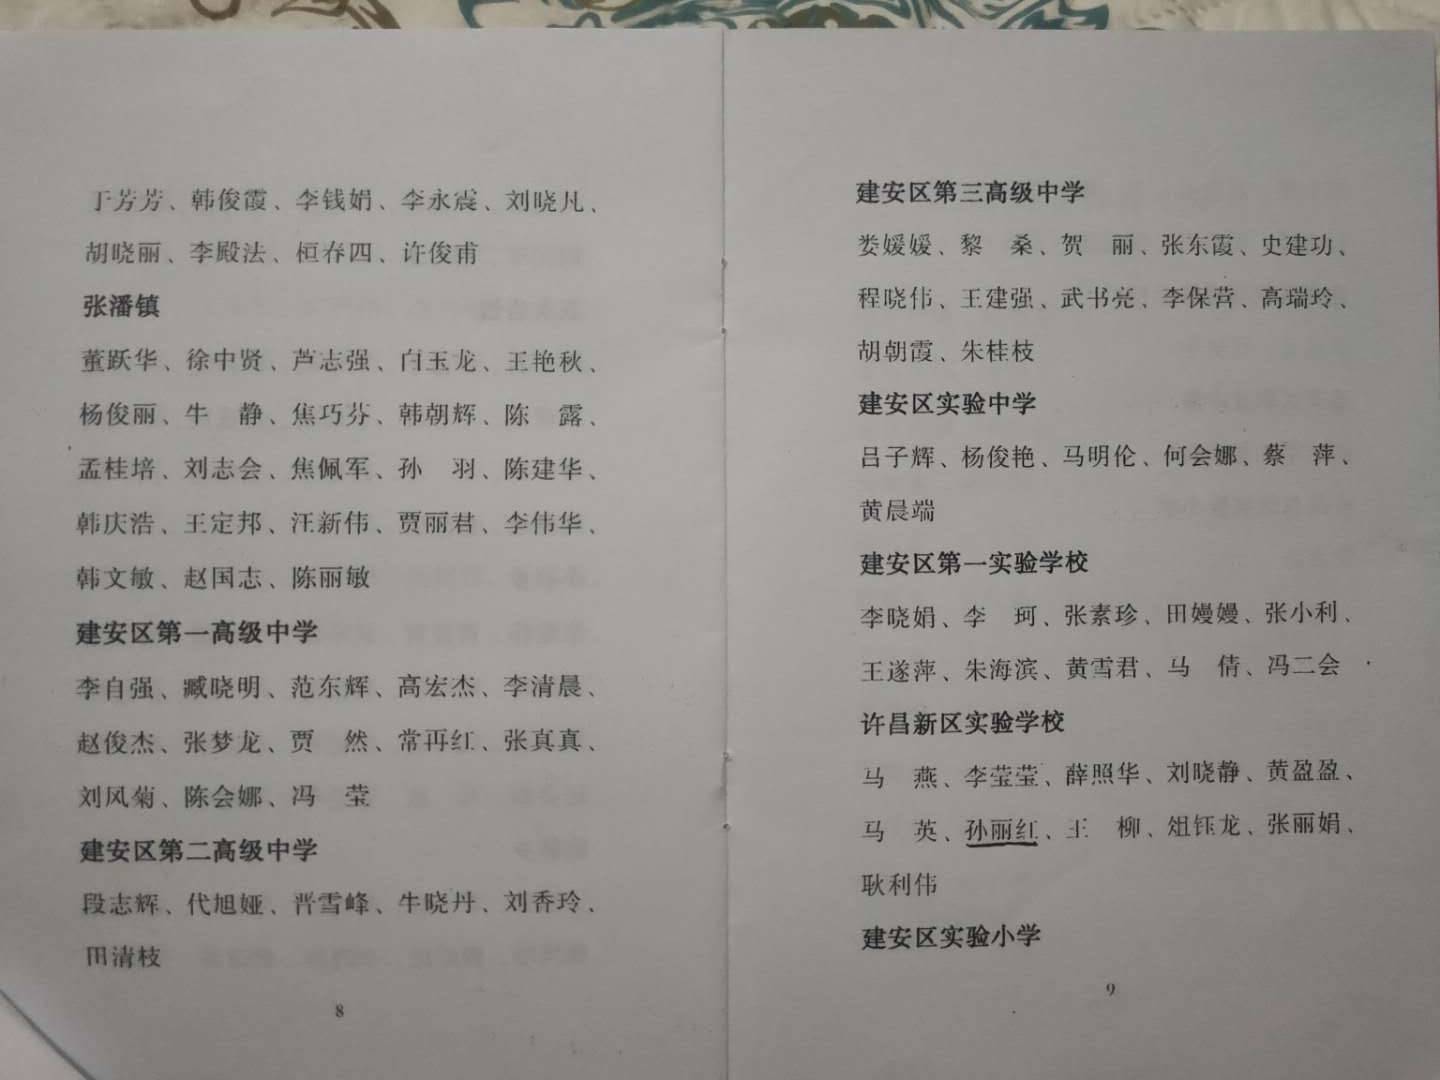 于芳芳、韩俊霞、李钱娟、李永震、刘晓凡、
胡晓丽、李殿法、桓存四、许俊甫
张潘镇
董跃华、徐中贤、芦志强、白玉龙、王艳秋、
杨俊丽、牛　静、焦巧芬、韩朝辉、陈　露、
孟桂培、刘志会、焦佩军、孙　羽、陈建华、
韩庆浩、王定邦、汪新伟、贾丽君、李伟华、
韩文敏、赵国志、陈丽敏
建安区第一高级中学
李自强、臧晓明、范东辉、高宏杰、李清晨、
赵俊杰、张梦龙、贾　然、常再红、张真真、
刘风菊、陈会娜、冯　莹
建安区第二高级中学
段志辉、代旭娅、晋雪峰、牛晓丹、刘香玲、
田清枝
8
建安区第三高级中学
娄媛媛、黎　桑、贺　丽、张东霞、史建功、
程晓伟、王建强、武书亮、李保营、高瑞玲、
胡朝霞、朱桂枝
建安区实验中学
吕子辉、杨俊艳、马明伦、何会娜、蔡　萍、
黄晨端
建安区第一实验学校
李晓娟、李　珂、张素珍、田嫚嫚、张小利、
王遂萍、朱海滨、黄雪君、马　倩、冯二会
许昌新区实验学校
马　燕、李莹莹、薛照华、刘晓静、黄盈盈、
马　英、孙丽红、王　柳、俎钰龙、张丽娟、
耿利伟
建安区实验小学
9